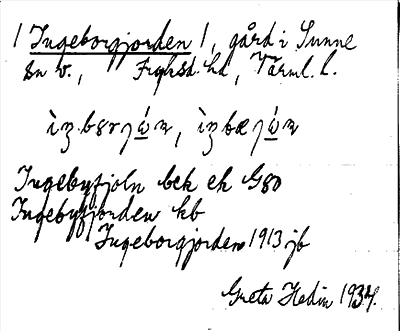 | Ingeborgjorden |, gård i Sunne
sn o., Fryksd. hd, Värml. l.
Ingebyfjoln bek ek G80
Ingebyfjorden kb
Ingeborgjorden 1913 jb
Greta Hedin 1934.